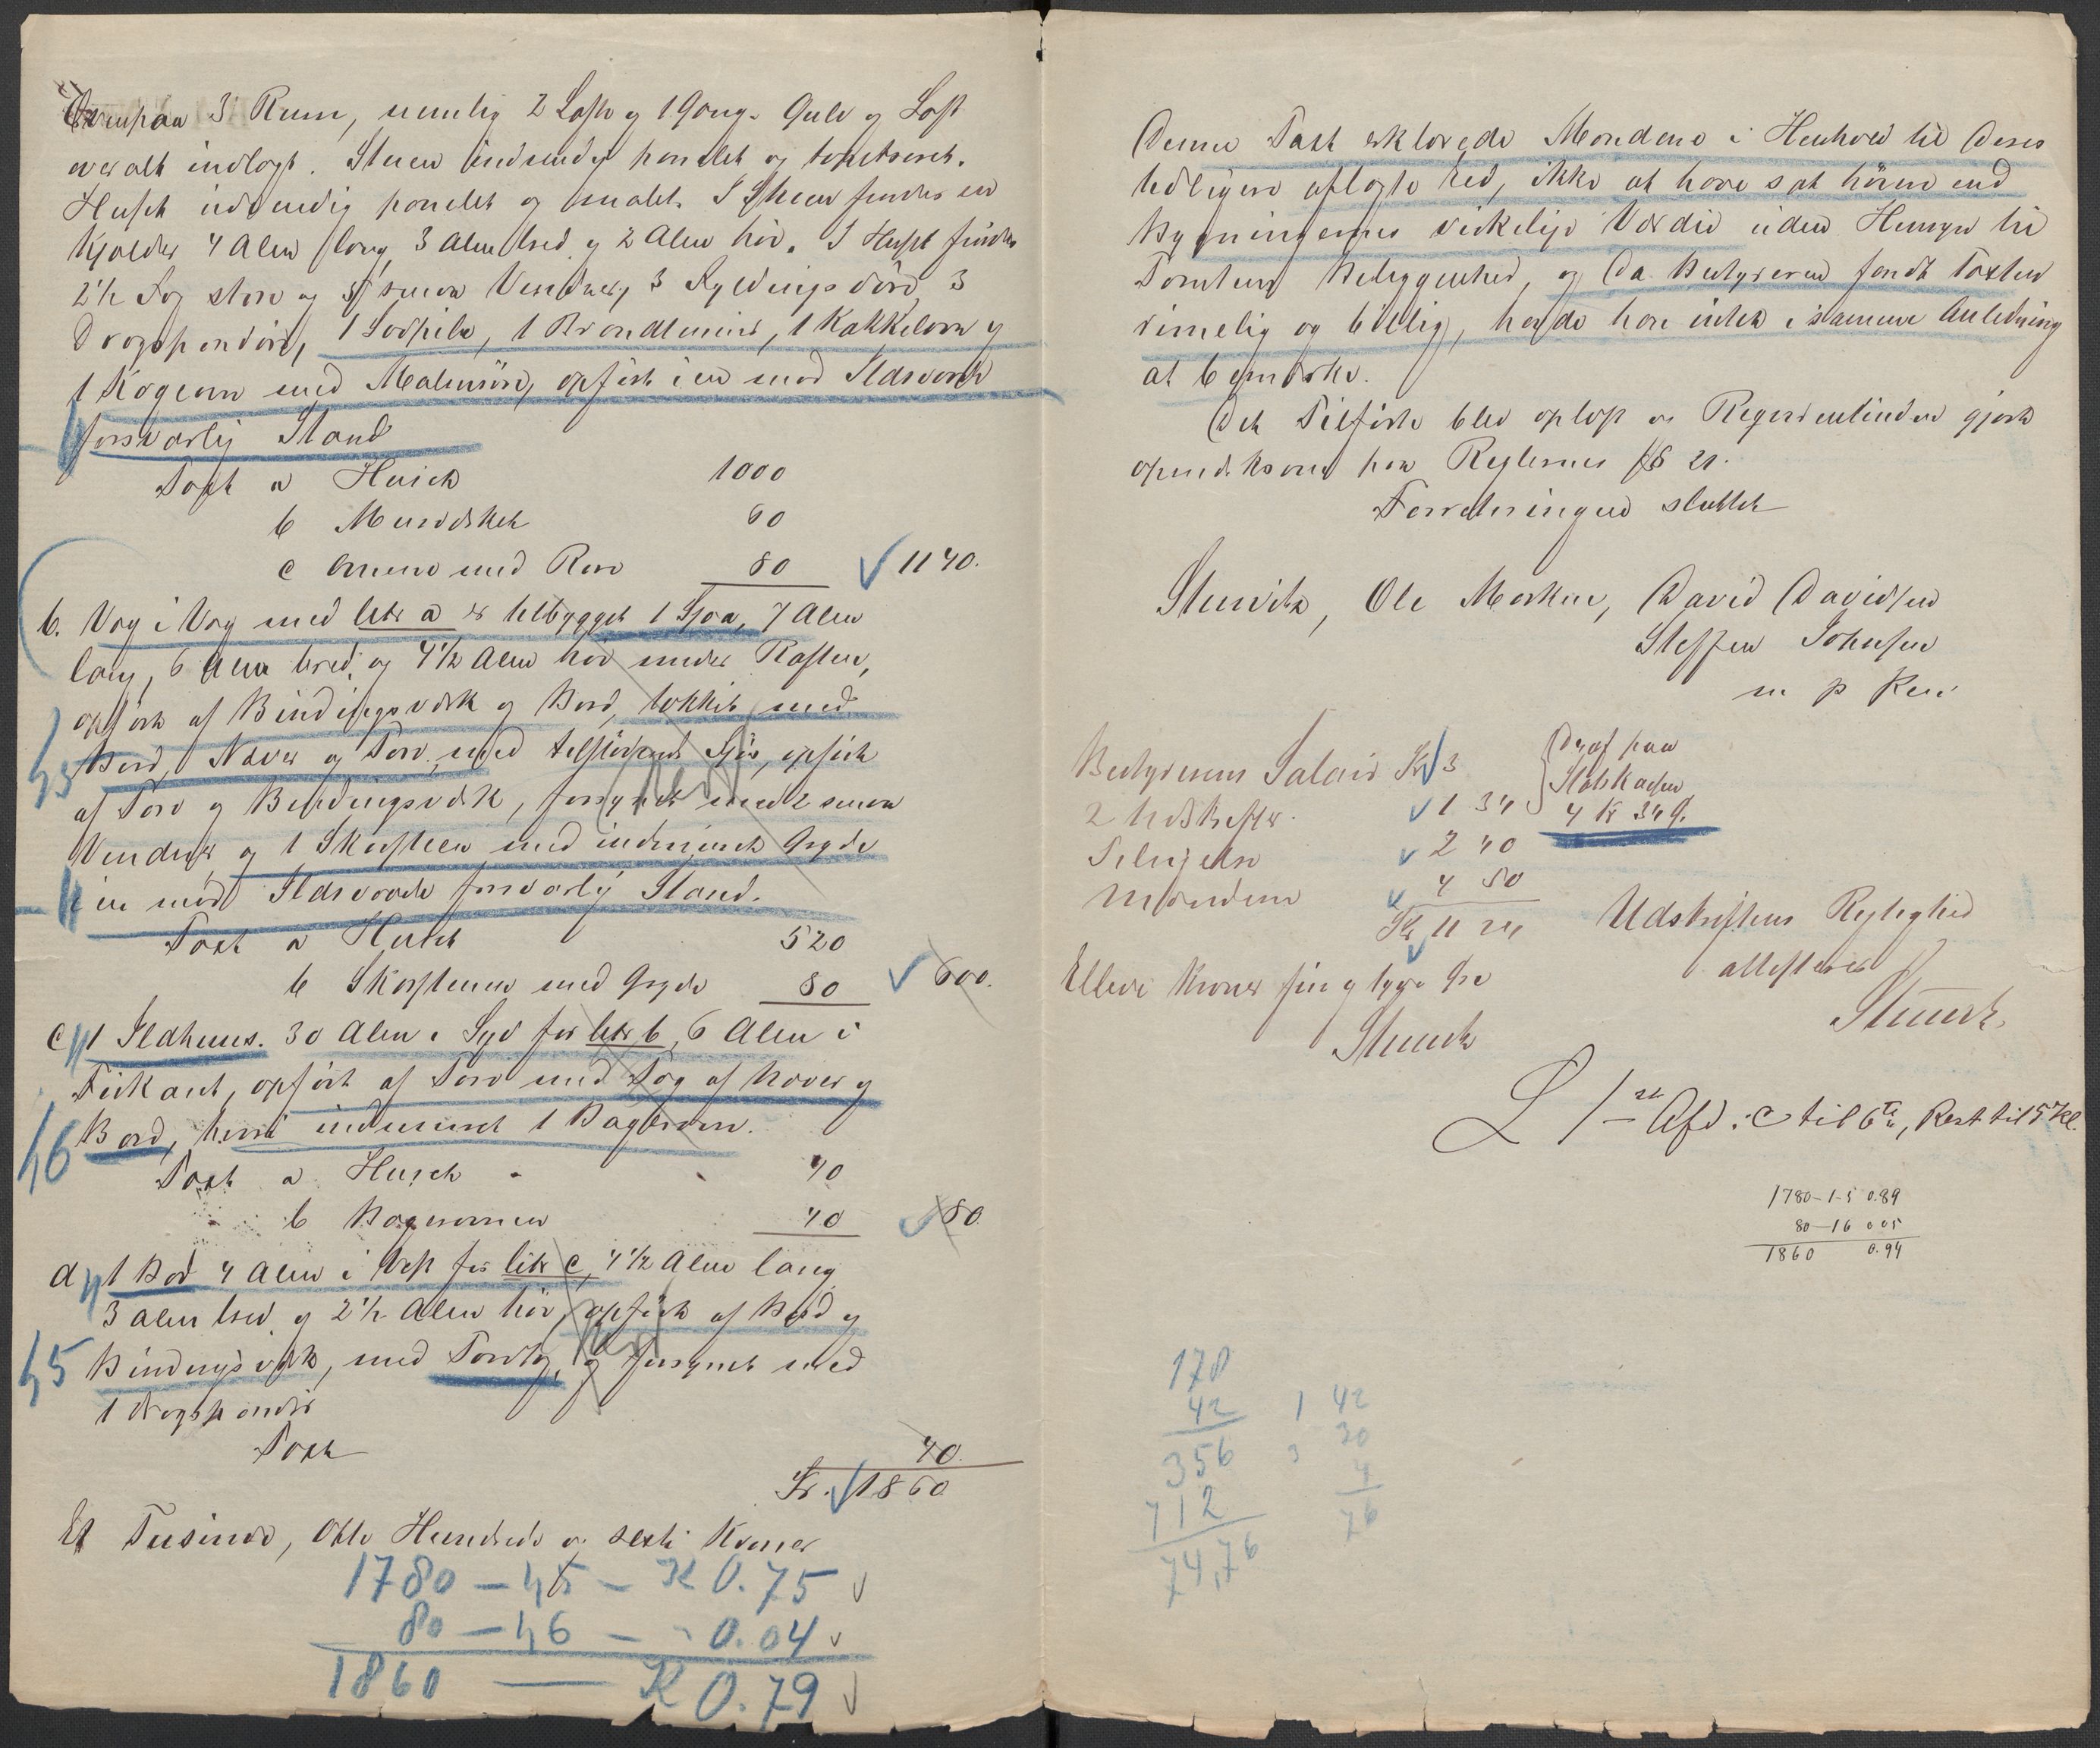 Ovenpaa 3 Rum, nemlig 2 Lofte og 1 Gang. Gulv og Loft
overalt indlagt. Stuen indvendig panelet og tapetseret.
Huset udvendig panelet og malet. I Stuen findes en
Kjælder 4 Alen lang, 3 Alen bred og 2 Alen høi. I Huset findes
2½ Fag store og 5 smaa Vinduer, 3 Fyldingsdøre, 3
Dragspandøre, 1 Sodpibe, 1 Brandmuur, 1 Kakkelovn og
1 Kogeovn med Malmrør, opført i en mod Ildsvaade
forsvarlig Stand
Taxt a Huset 1000
b Murværket 60
c Ovnene med Rør 80 1140.
b. Væg i Væg med litr a er tilbygget 1 Fjøs, 7 Alen
lang, 6 Alen bred, og 4½ Alen høi under Raften,
opført af Bindingsværk og Bord, tækket med
Bord, Næver og Torv, med tilstødende Fjøs, opført
af Torv og Bindingsværk, forsynet med 2 smaa
Vinduer og 1 Skorsteen med indmuret Gryde
i en mod Ildsvaade forsvarlig Stand.
Taxt a Huset 520
b Skorstenen med Gryde 80 600.
c 1 Ildhuus. 30 Alen i Syd for litr b, 6 Alen i
Firkant, opført af Torv med Tag af Næver og
Bord, heri indmuret 1 Bagerovn.
Taxt a Huset 40
b Bagerovnen 40 80
d 1 Bod 4 Alen i Vest for litr c, 4½ Alen lang
3 Alen bred og 2½ Alen høi, opført af Bord og
Bindingsværk, med Torvtag, og forsynet med
1 Dragspandør
Taxt 40.
Kr. 1860
Et Tusinde, Otte Hundrede og sexti Kroner
1780 — 45 — K 0.75
80 — 46 — " 0.04
1860 — K 0.79
Denne Taxt erklærede Mændene i Henhold til deres
tidligere aflagte Eed, ikke at have sat høiere end
Bygningernes virkelige Værdie uden Hensyn til
Tomtens Beliggenhed, og da Bestyreren fandt Taxten
rimelig og billig, havde han intet i samme Anledning
at bemærke.
Det Tilførte blev oplæst og Reqvirentinden gjort
opmærksom paa Reglernes § 21.
Forretningen sluttet
Ole Morten, David Davidsen
Steffen Johnsen
m p Pen
Bestyrerens Salair Kr 3
2 Udskrifter. 1 34
Tilsigelse 2 40
Mændene 4 50
Kr 11 24
Deraf paa
Statskassen
4 Kr 34 Ø.
Elleve Kroner fire og tyve Øre
Udskriftens Rigtighed
attesterer
L 1ste Afd: c til 6te, Rest til 5te Kl.
1780 - 1-5 0.89
80 - 16 0.05
1860 0.94
178
42
356
712
74,76
1 42
3 30
4
76